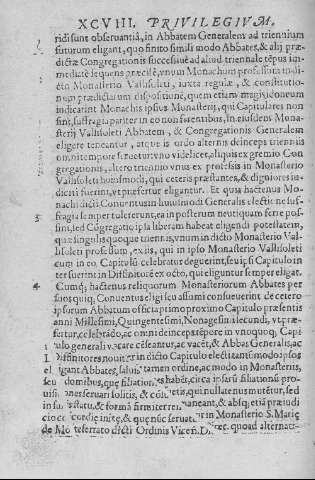 XCVIII. PRIVILEGIVM.
ridi sunt obseruantiâ, in Abbatem Generalem ad triennium
futurum eligant, quo finito simili modo Abbates, & alij præ-
dictæ Congregationis successiuè ad aliud triennale tẽpus im-
mediatè sequens præcisè, vnum Monachum professum in di-
cto Monasterio Vallisoleti, iuxta regulæ, & constitutio-
num prædictarum dispositionẽ, quem etiam magis idoneum
indicarint Monachi ipsius Monasterij, qui Capitulares non
sint, suffragia pariter in eo non ferentibus, In eiusdem Mona-
sterij Vallisoleti Abbatem, & Congregationis Generalem
eligere teneantur, atque is ordo alternis deinceps trienniis
omni tempore seruetur vnò videlicet, aliquis ex gremio Con
gregationis, altero triennio vnus ex professis in Monasterio
Vallisoleti huiusmodi, qui cetero præstantes, & digniores in-
dicti fuerint, vt præfertur eligantur. Et quia hactenus Mo-
nachi dicti Conuentus in huiusmodi Generalis electione suf-
3. fragia semper tulerunt, ea in posterum neutiquam ferre pos-
sint, sed Cõgregatio ipsa liberam habeat eligendi potestatem,
quæ singulis quoque trienniis, vnum in dicto Monasterio Val-
lisoleti professum, & vis, qui in ipso Monasterio Vallisoleti
cum in eo Capitulũ celebratur deguerint, seu ipsi Capitulo in
ter fuerint in Diffinitorẽ ex octo, qui eliguntur semper eligat.
4. Cumq; hactenus reliquorum Monasteriorum Abbates per
suos quiq; Conuentus eligi seu assumi consueuerint de cetero
ipsorum Abbatum officia primo proximo Capitulo præsentis
anni Millesimi, Quingentesimi, Nonagesimi secundi, vt præ-
fertur, celebrãdo, ac omni deinceps tẽpore in vnoquoq; Capi
tulo generali vacare cẽseantur, ac vacẽt, & Abbas Generalis, ac
Diffinitores noui ter in dicto Capitulo electi tantũmodo ipsos
eligant Abbates, saluis tamen ordine, ac modo in Monasteriis,
seu domibus, quę filiationes habẽt, circa ipsarũ filiationũ pro-
uisionẽ seruari solitis, & cõsuetis, qui nullatenus mutẽtur, sed
in suo statu, & formâ firmiter remaneant, & absq; etiâ præiudi
cio cõcordiæ initæ, & quę nũc seruatur in Monasterio S. Marię
de Monteserrato dicti Ordinis Vicen. D quod alternati-